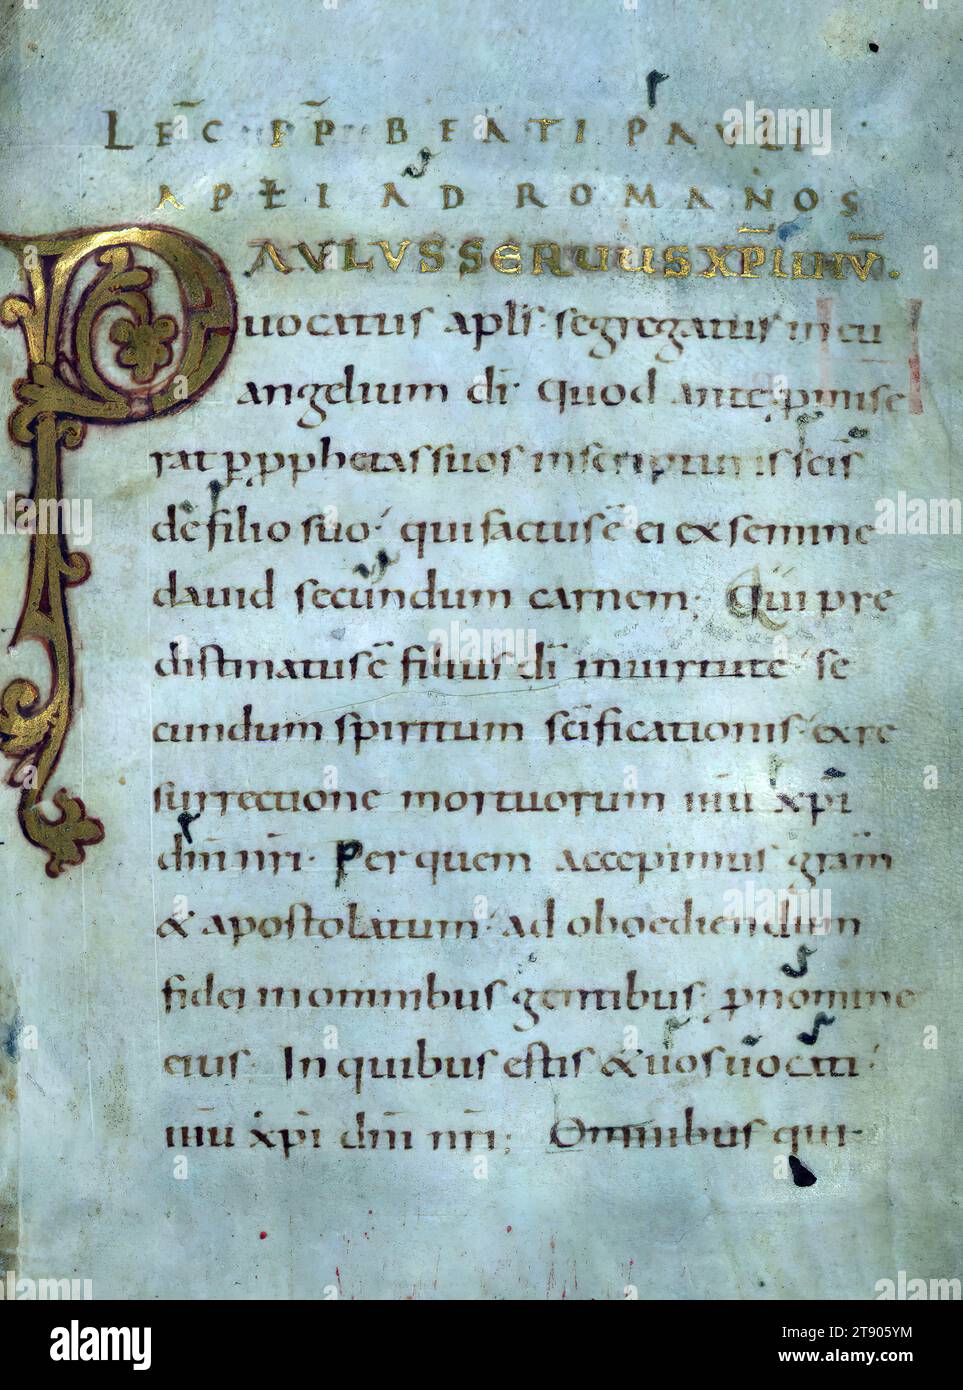 LEC̄ EP̄ BEATI PAULI
APŁI AD ROMANOS
PAULUS SERUUS XP̄I IHŪ.
uocatus apłs· segregatus in eu
angelium dī· Quod ante promise
rat per prophetas suos in scripturis scīs
de filio suo· qui factus ē ei ex semine
dauid secundum carnem; Qui pre
distinatus ē filius dī in uirtute se
cundum spiritum scīficationis· ex re
surrectione mortuorum ihū xp̄i
dn̄i nr̄i· Per quem accepimus gram̄
& apostolatum· ad oboediendum
fidei in omnibus gentibus; p nomine
eius· In quibus estis & uos uocati·
ihū xp̄i dn̄i nr̄i; Omnibus qui·
alamy
Image ID: 2T905YM
www.alamy.com